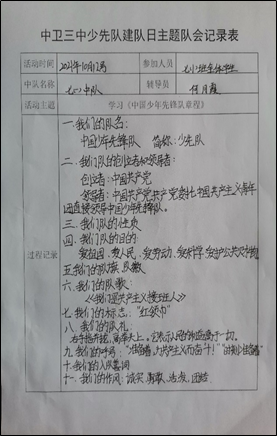 中卫三中少先队建队日主题队会记录表
活动时间 2021年10月12号 参加人员 七(八)班全体学生
中队名称 七(八)中队 辅导员 何月霞
活动主题 学习《中国少年先锋队章程》
过程记录
一.我们的队名:
中国少年先锋队 简称:少先队
二.我们队的创立者和领导者:
创立者:中国共产党
领导者:中国共产党 共产党委托中国共产主义青年
团直接领导中国少年先锋队。
三.我们队的性质
四.我们队的目的
爱祖国、爱人民、爱劳动、爱科学、爱护公共财物
五.我们的队旗、队徽
六.我们的队歌:
《我们是共产主义接班人》
七.我们的标志:"红领巾"
八.我们的队礼:
右手五指并拢,高举头上。它表示人民的利益高于一切。
九.我们的呼号:"准备着,为共产主义而奋斗!""时刻准备着"
十.我们的入队誓词
十一.我们的作风:诚实、勇敢、活泼、团结